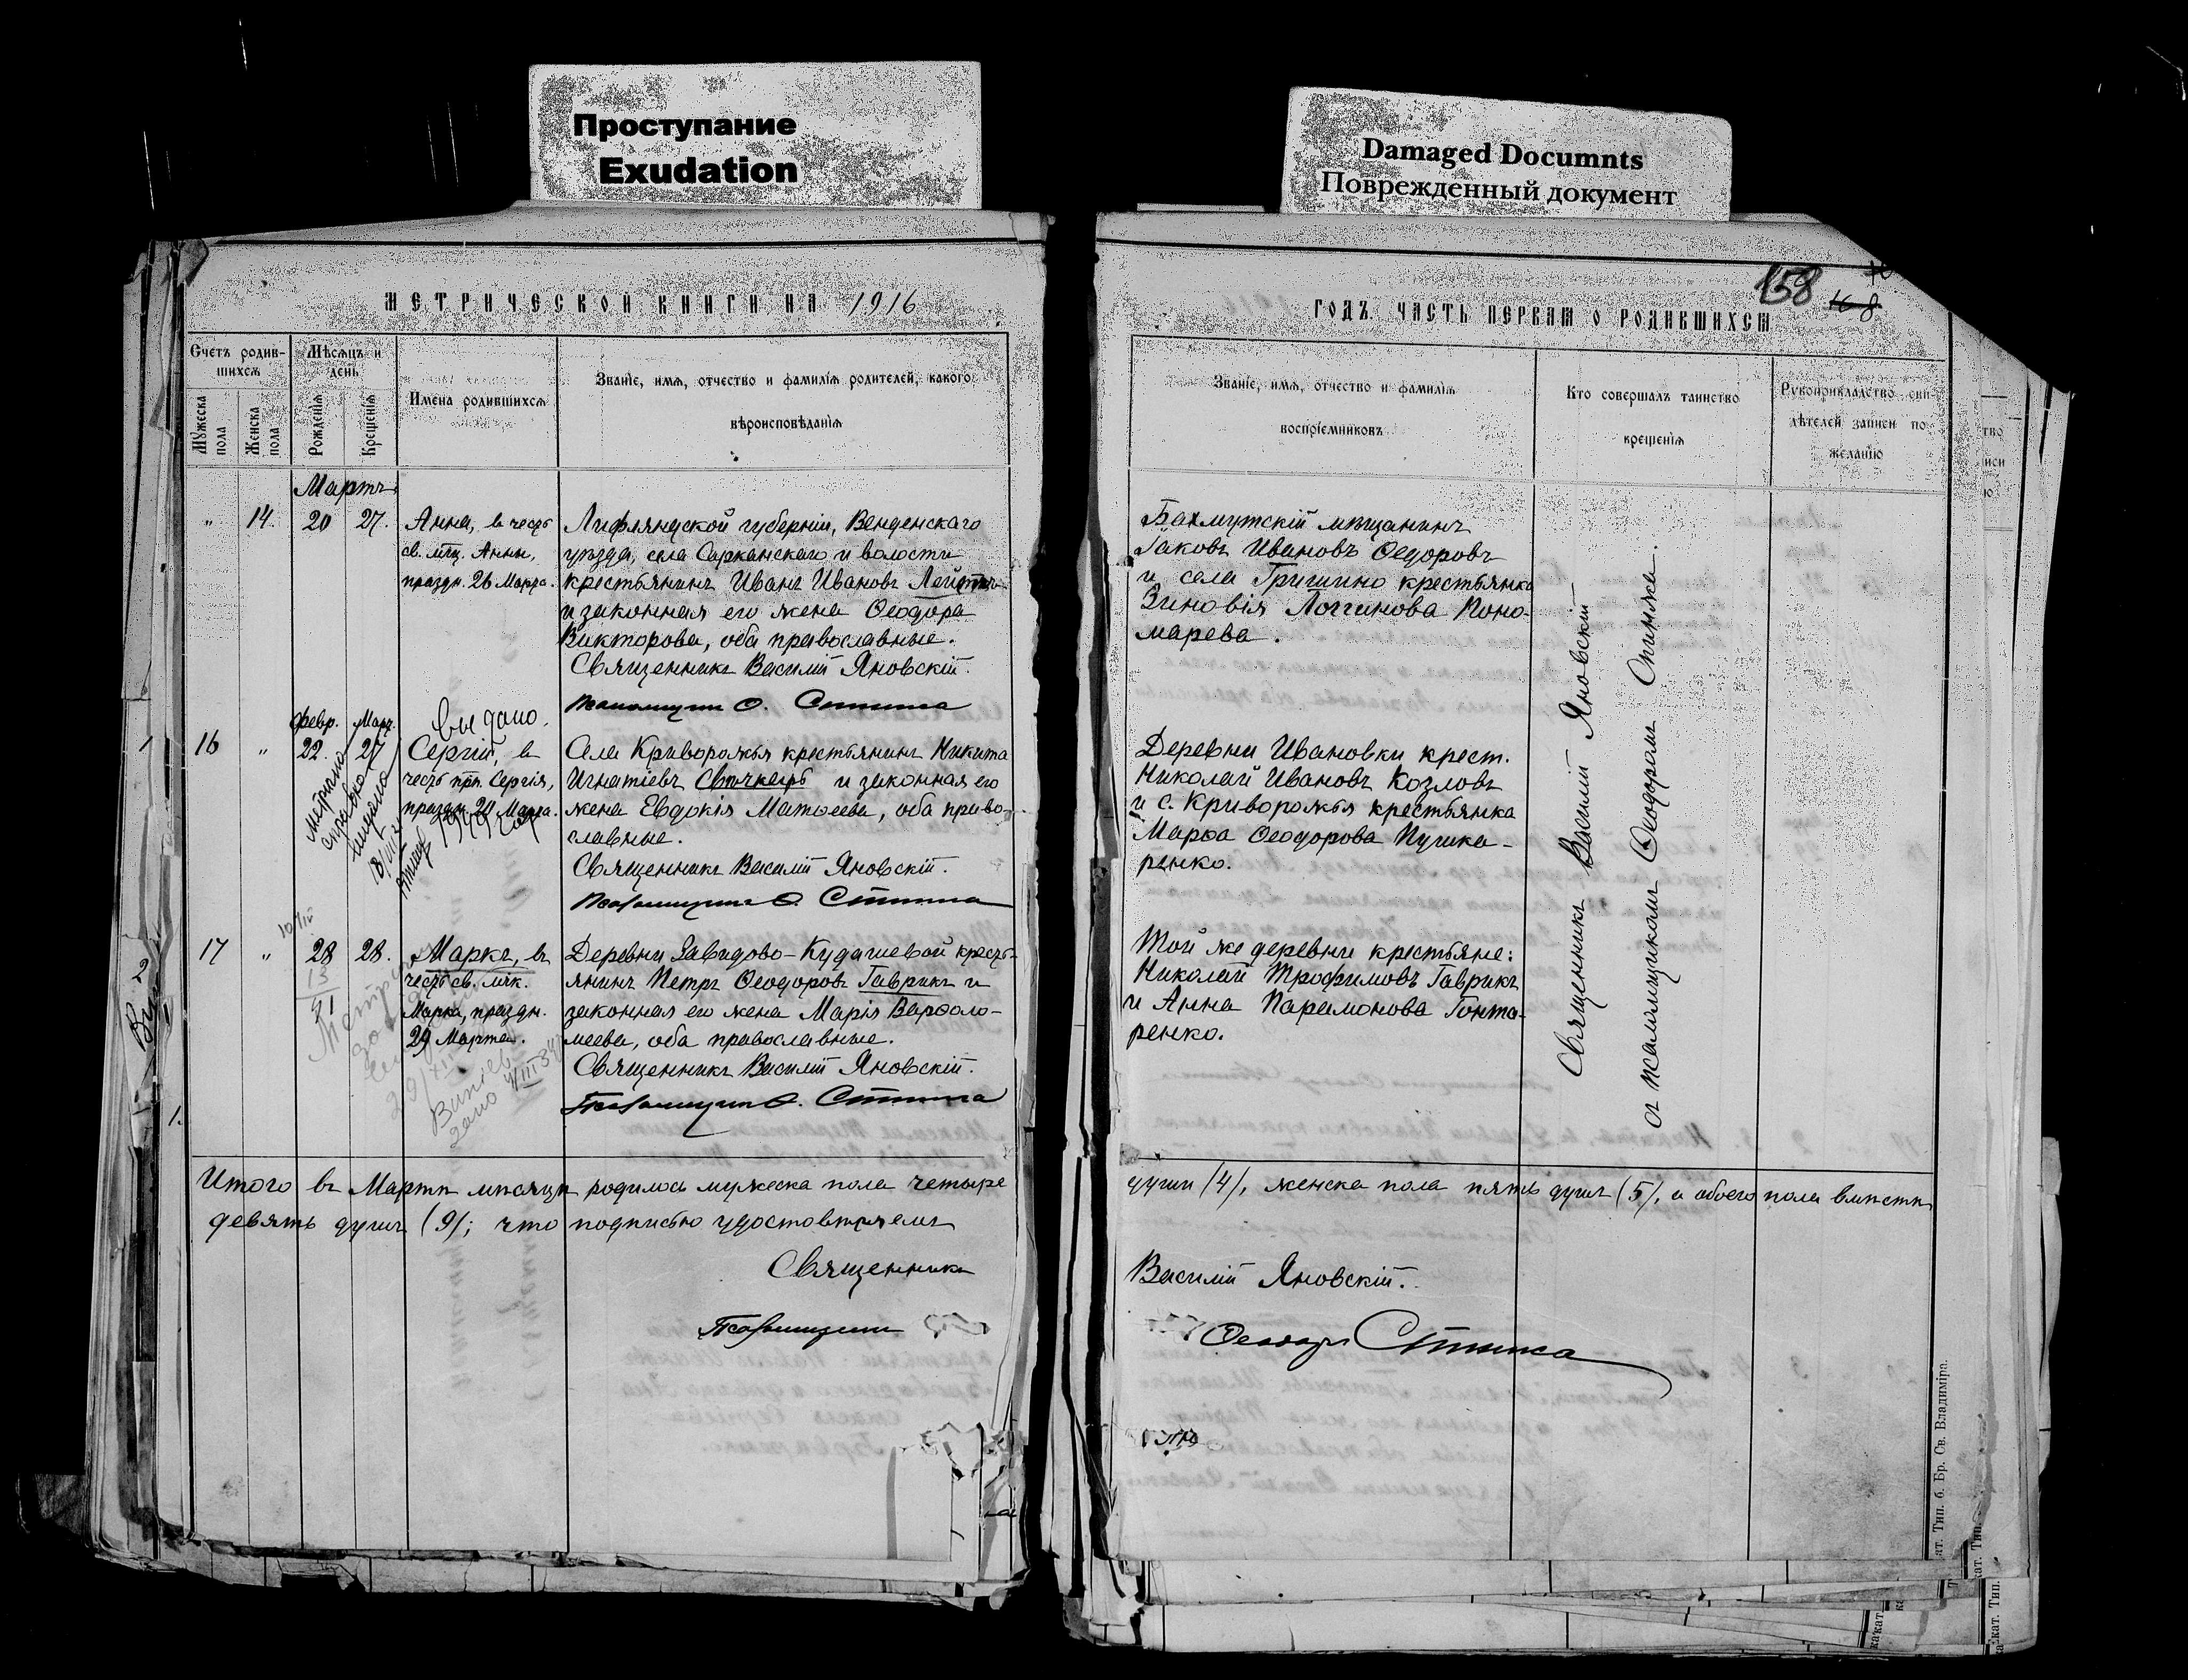 Проступание
Exudation
Damaged Documnts
Поврежденный документ
МЕТРИЧЕСКОЙ КНИГИ НА 1916
Счетъ родив-
шихся
Мѣсяцъ и
день
Мужеска
пола
Женска
пола
Рожденія
Крещенія
Имена родившихся
Званіе, имя, отчество и фамилія родителей, какого
вѣроисповѣданія
Мартъ
" 14. 20 27.
Анна, въ честь
св. мц. Анны,
праздн. 26 Марта.
Лифляндской губерніи, Венденскаго
уѣзда, села Сарканскаго и волости
крестьянинъ Иванъ Ивановъ
и законная его жена Ѳеодора
Викторова, оба православные.
Священникъ Василій Яновскій.
Псаломщикъ Ѳ. Спинка
Февр. Март.
16 " 22. 27
выдано.
Сергій, въ
честь прп. Сергія,
праздн. 20 Марта.
1949
Села Криворожья крестьянинъ Никита
Игнатіевъ и законная его
жена Евдокія Матѳеева, оба право-
славные.
Священникъ Василій Яновскій.
Псаломщикъ Ѳ. Спинка
17 " 28 28.
Маркъ, въ
честь св. мчк.
Марка, праздн.
29 Марта.
Деревни Давидово-Кудашевой кресть-
янинъ Петръ Ѳеодоровъ Гаврикъ и
законная его жена Марія Варѳоло-
меева, оба православные.
Священникъ Василій Яновскій.
Псаломщикъ Ѳ. Спинка
Итого въ Мартѣ мѣсяцѣ родилось мужеска пола четыре
девять душъ (9); что подписью удостовѣряемъ
Священникъ
Псаломщикъ
158
ГОДЪ ЧАСТЬ ПЕРВАЯ О РОДИВШИХСЯ
Званіе, имя, отчество и фамилія
воспріемниковъ
Кто совершалъ таинство
крещенія
Рукоприкладство сви-
дѣтелей записи по
желанію
Бахмутскій мѣщанинъ
Іаковъ Ивановъ Ѳедоровъ
и села Гришино крестьянка
Зиновія Логгинова Поно-
марева.
Деревни Ивановки крест.
Николай Ивановъ Козловъ
и с. Криворожья крестьянка
Марѳа Ѳеодорова Пушка-
ренко.
Той же деревни крестьяне:
Николай Трофимовъ Гаврикъ
и Анна Парамонова Гонта-
ренко.
Священникъ Василій Яновскій
съ псаломщикомъ Ѳеодоромъ Спинка.
души (4), женска пола пять душъ (5), а обоего пола вмѣстѣ
Василій Яновскій.
Ѳеодоръ Спинка
ат. Тип. б. Бр. Св. Владиміра.